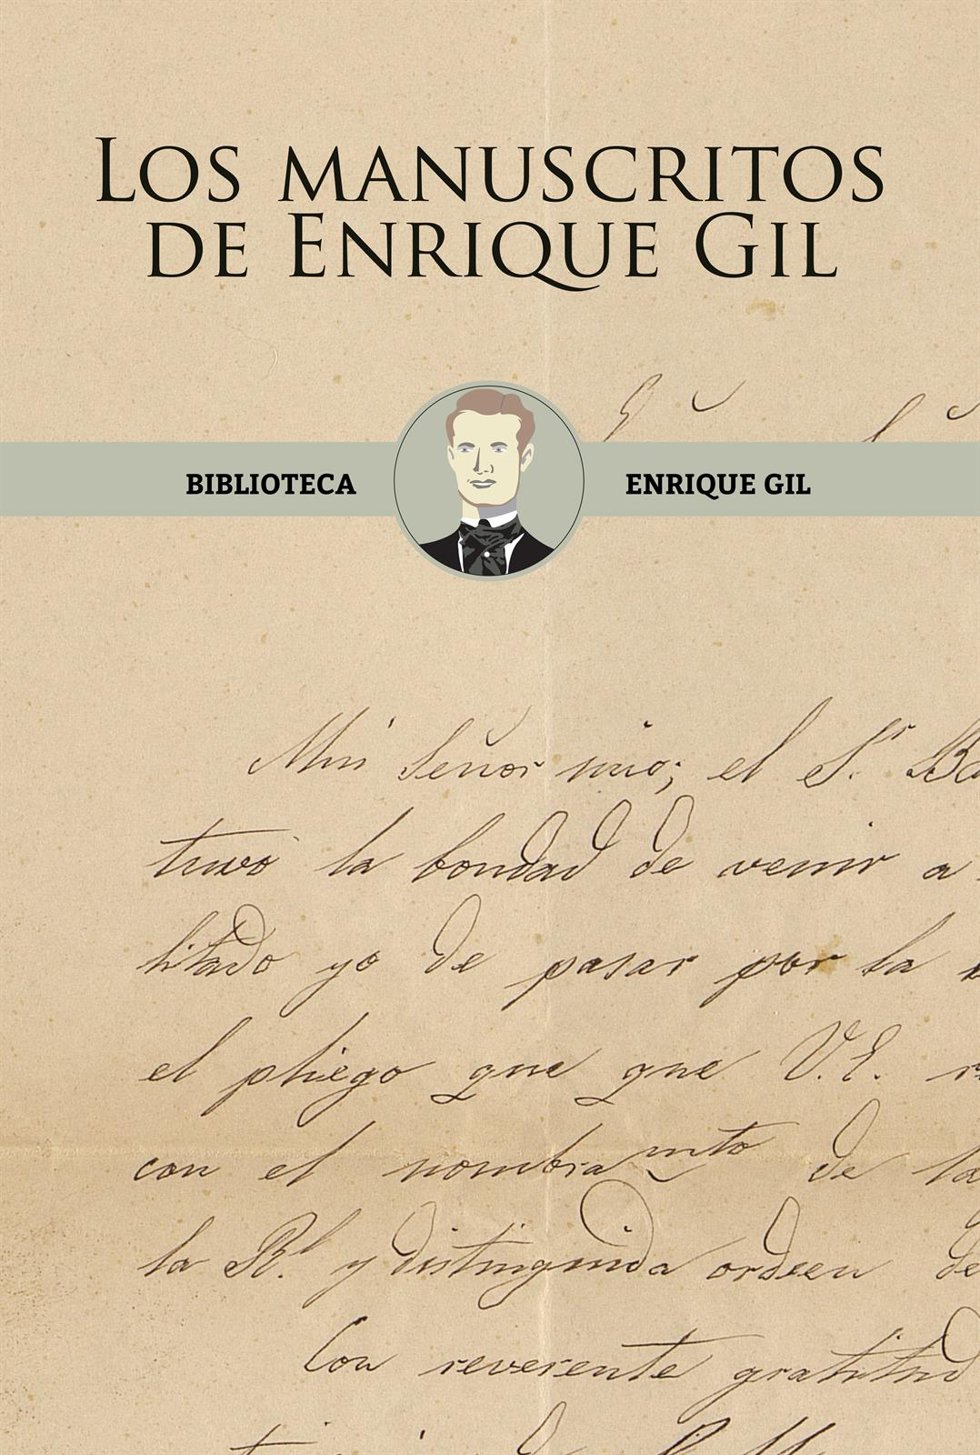 LOS MANUSCRITOS
DE ENRIQUE GIL
BIBLIOTECA ENRIQUE GIL
Muy Señor mio; el S.r
tuvo la bondad de venir a
yo de pasar por la
el pliego que que V.E.
con el nombramto de la
la Rl. y distinguida orden de
Con reverente gratitud